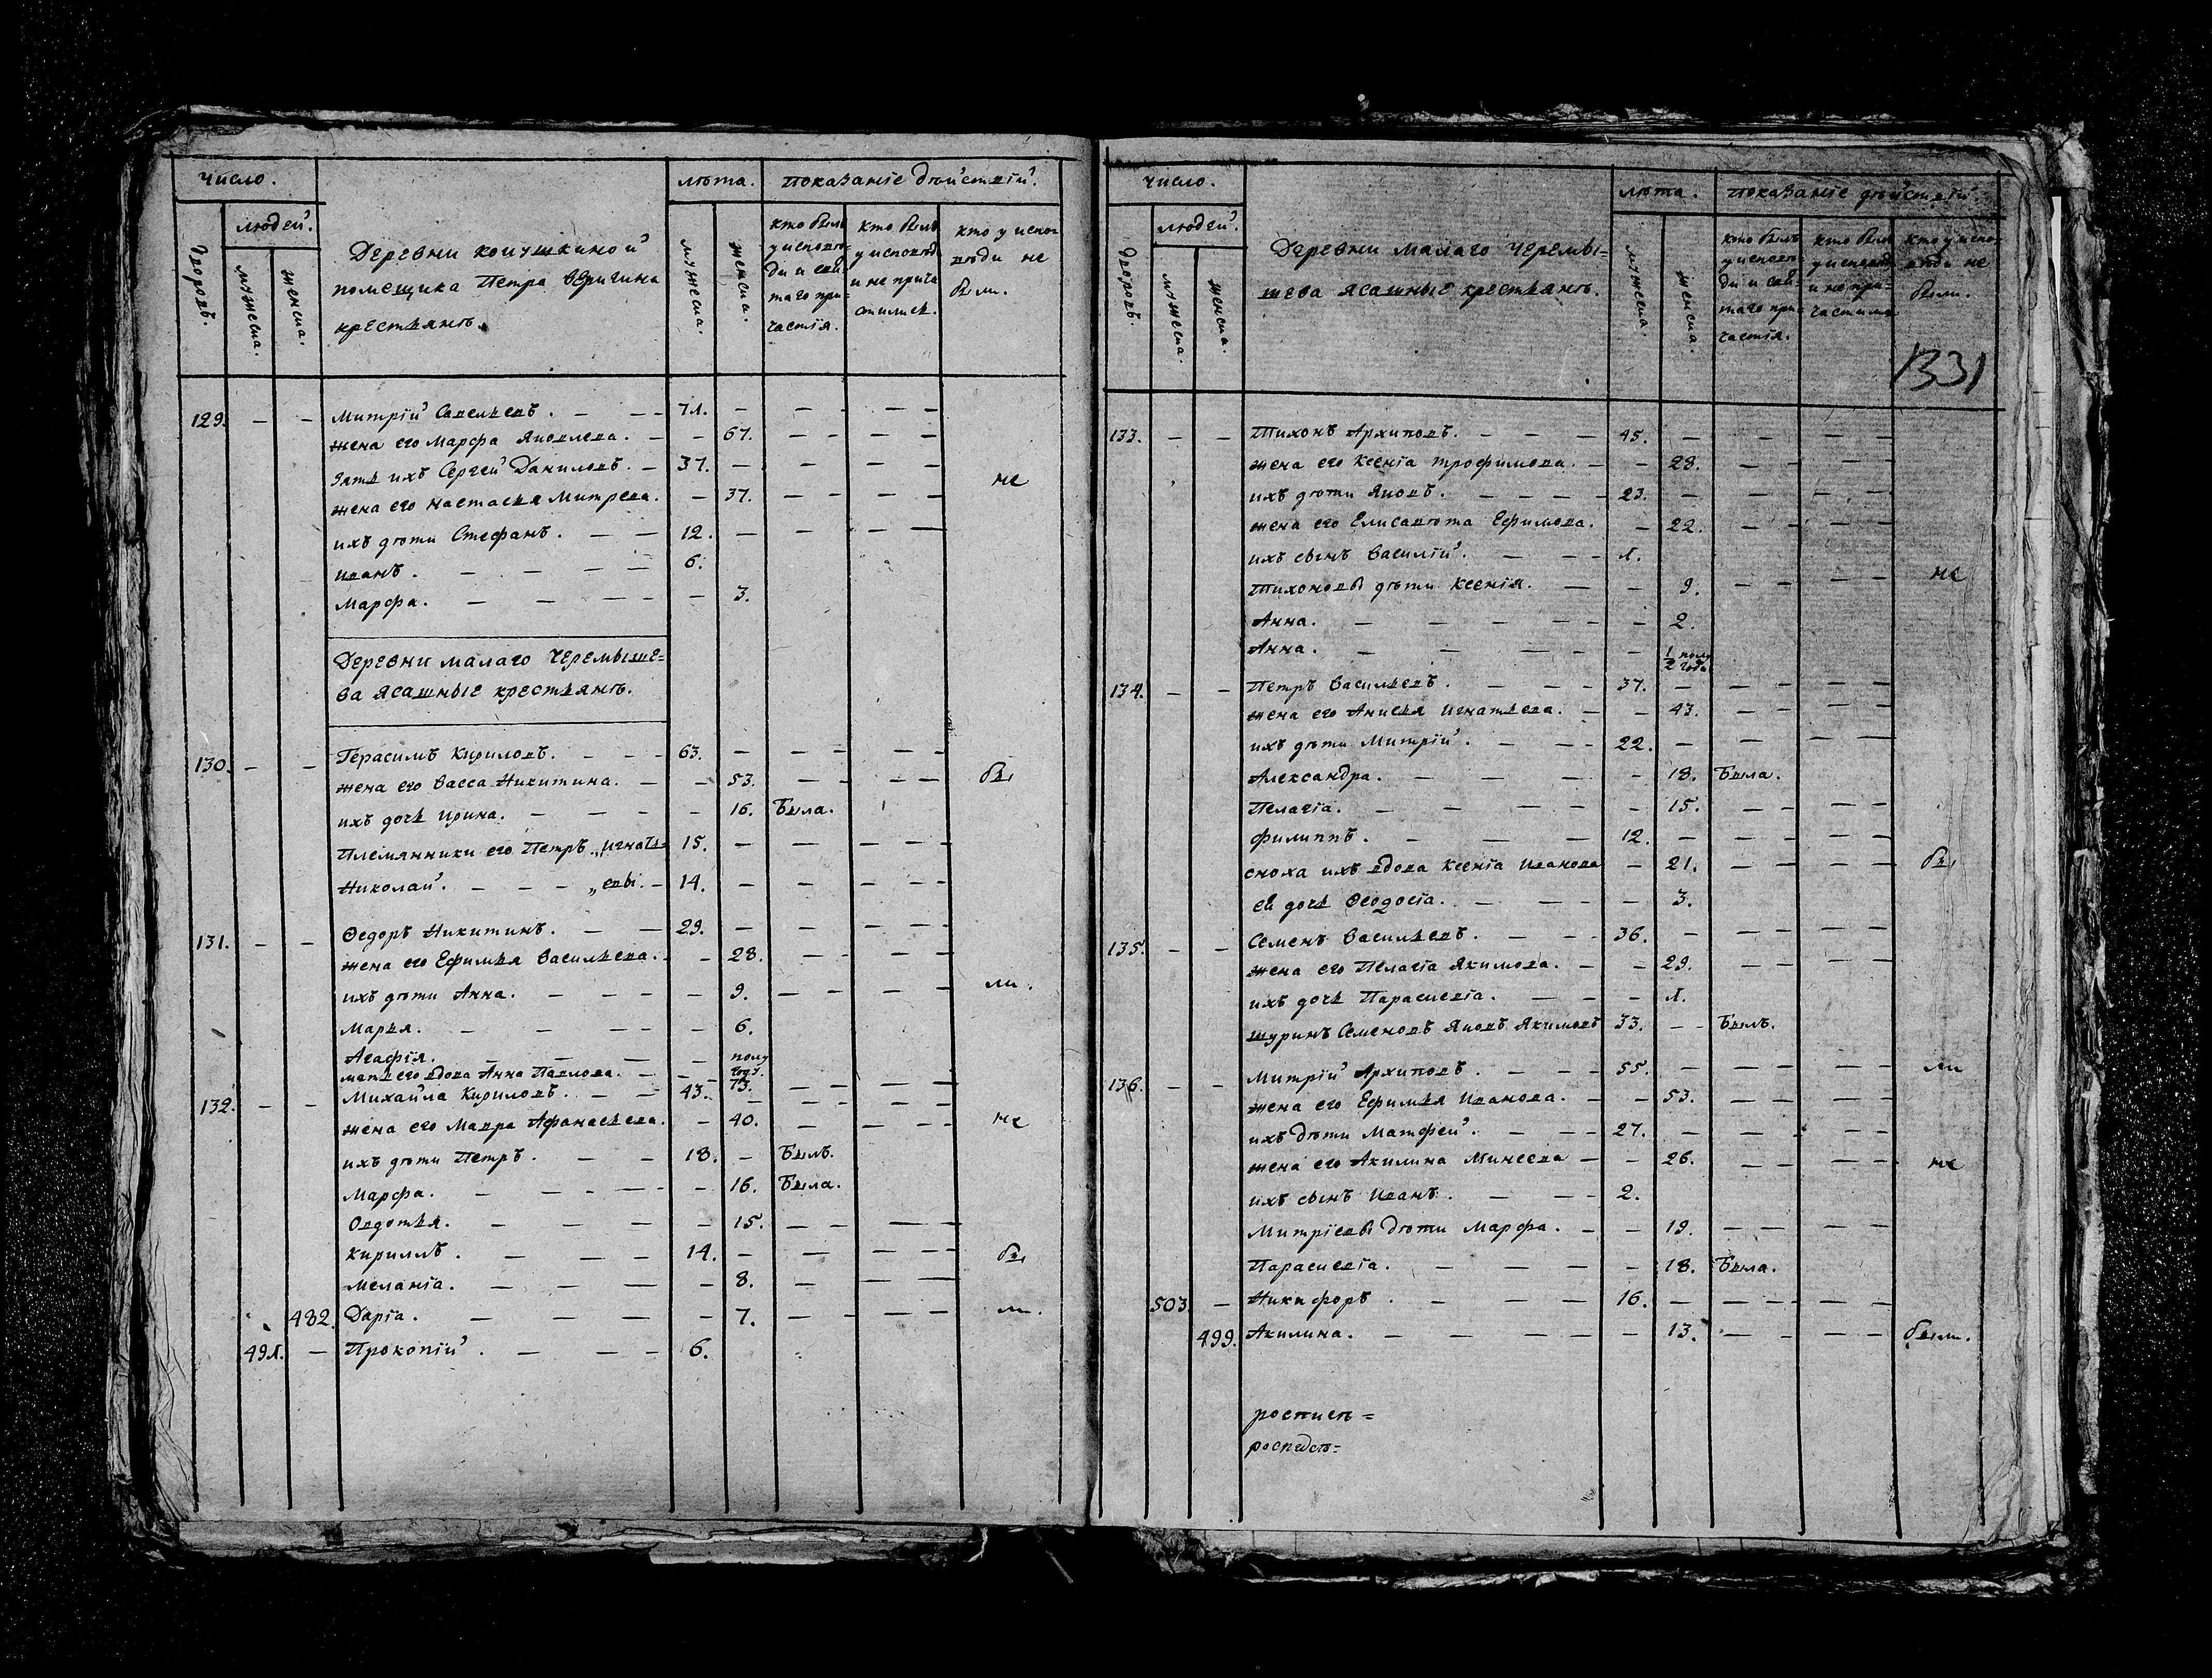 число.
людей.
дворовъ.
мужеска.
женска.
Деревни
помещика Петра Веригина
крестьянъ.
лѣта.
мужеска.
женска.
показаніе дѣйствій.
кто былъ у исповѣ-
ди и свя-
таго при-
частія.
кто былъ
у исповѣди
и не прича
стился.
кто у испо-
вѣди не
были.
129. — — Митрій Савельевъ. — — 71. — — — — —
жена его Марфа Яковлева. — — 67. — — — —
зять ихъ Сергей Даниловъ. — 37. — — — — — не
жена его Настасья Митрева. — 37. — — — —
ихъ дѣти Стефанъ. — — 12. — — — —
Иванъ. — — — — 6.
Марфа. — — — — — 3.
Деревни малаго Черемыше-
ва ясашные крестьянъ.
130. — — Герасимъ Кириловъ. — — 63. — — — — —
жена его Васса Никитина. — — 53. — — — — бы
ихъ дочь Ирина. — — — — 16. Была.
Племянники его Петръ „Игнать- 15. — — — — —
Николай. — — — „евы. — 14. — — — — —
131. — — Ѳедоръ Никитинъ. — — 29. — — — — —
жена его Ефимья Васильева. — — 28. — — — —
ихъ дѣти Анна. — — — — 9. — — — — ли.
Марья. — — — — — 6.
Агафія. — — — — полу
года.
мать его вдова Анна Павлова. — — 73. — — — —
132. — — Михайла Кириловъ. — — 43. — — — — —
жена его Мавра Афанасьева. — 40. — — — — не
ихъ дѣти Петръ. — — 18. — Былъ.
Марфа. — — — — — 16. Была.
Овдотья. — — — — 15. — — — —
Кириллъ. — — — 14. — — — —
бы
Меланіа. — — — — 8. — — —
482. Даріа. — — — — 7. — — — — ли.
491. — Прокопій. — — — 6.
число.
людей.
дворовъ.
мужеска.
женска.
Деревни малаго Черемы-
шева ясашные крестьянъ.
лѣта.
мужеска.
женска.
показаніе дѣйствій.
кто былъ
у исповѣ-
ди и свя-
таго при-
частія.
кто былъ
у исповѣди
и не при-
частился
кто у испо-
вѣди не
были.
1331
133. — — Тихонъ Архиповъ. — — — 45. — — — — —
жена его Ксеніа Трофимова. — — 28. — — — —
ихъ дѣти Яковъ. — — — — 23. — — — — —
жена его Елисавѣта Ефимова. — 22. — — — —
ихъ сынъ Василій. — — — 1.
Тихоновы дѣти Ксенія. — — 9. — — — — не
Анна. — — — — — — 2.
Анна. — — — — — 1/2 полу
года
134. — — Петръ Васильевъ. — — — 37. — — — — —
жена его Анисья Игнатьева. — — 43. — — — —
ихъ дѣти Митрій. — — — 22. — — — — —
Александра. — — — — 18. Была.
Пелагіа. — — — — — 15. — — — —
Филиппъ. — — — 12. — — — — —
сноха ихъ вдова Ксеніа Иванова — 21. — — — — бы
ея дочь Ѳеодосіа. — — — — 3.
135. — — Семенъ Васильевъ. — — — 36. — — — — —
жена его Пелагіа Якимова. — — 29. — — — —
ихъ дочь Параскевіа. — — — 1.
шуринъ Семеновъ Яковъ Якимовъ 33. — — Былъ.
136. — — Митрій Архиповъ. — — — 55. — — — — — ли
жена его Ефимья Иванова. — — 53. — — — —
ихъ дѣти Матфей. — — — 27. — — — — —
жена его Акилина Минеева — — 26. — — — — не
ихъ сынъ Иванъ. — — — 2.
Митріевы дѣти Марфа. — — 19. — — — —
Параскевіа. — — — — — 18. Была.
503. — Никифоръ. — — — 16. — — — — —
499. Акилина. — — — — — 13. — — — — были.